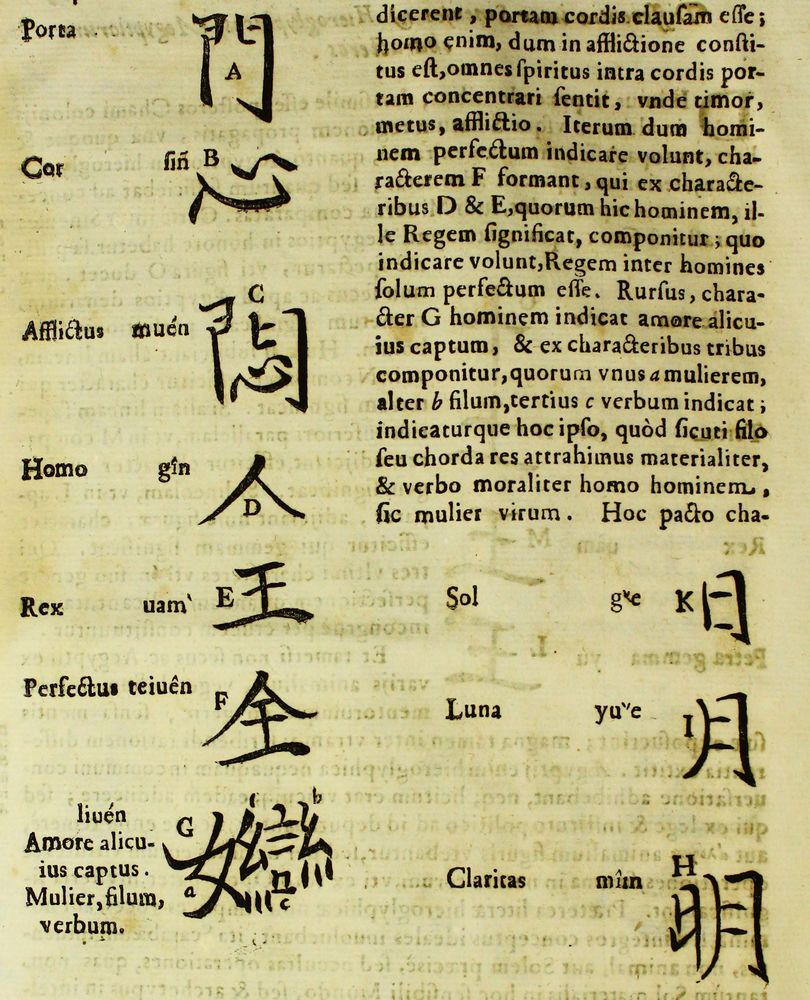 Porta 門 A
Cor ſiñ B 心
Afflictus muén C 悶
Homo gîn 人 D
Rex uam‵ E 王
Perfectus teiuên F 全
liuén
Amore alicu-
ius captus.
Mulier, filum,
verbum.
G a b c c
dicerent, portam cordis clauſam eſſe;
homo enim, dum in afflictione conſti-
tus eſt, omnes ſpiritus intra cordis por-
tam concentrari ſentit, vnde timor,
metus, afflictio. Iterum dum homi-
nem perfectum indicare volunt, cha-
racterem F formant, qui ex characte-
ribus D & E, quorum hic hominem, il-
le Regem ſignificat, componitur; quo
indicare volunt, Regem inter homines
ſolum perfectum eſſe. Rurſus, chara-
cter G hominem indicat amore alicu-
ius captum, & ex characteribus tribus
componitur, quorum vnus a mulierem,
alter b filum, tertius c verbum indicat;
indicaturque hoc ipſo, quòd ſicuti filo
ſeu chorda res attrahimus materialiter,
& verbo moraliter homo hominem,
ſic mulier virum. Hoc pacto cha-
Sol K 日
Luna I 月
Claritas mîm H 明